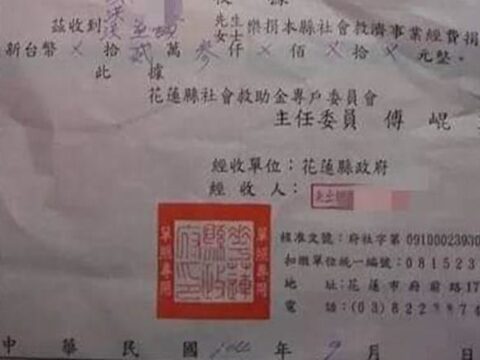 茲收到 先生女士 樂捐本縣社會救濟事業經費捐
新台幣 X 拾 貳 萬 參 仟 X 佰 X 拾 X 元整。
此據
花蓮縣社會救助金專戶委員會
主任委員 傅 崐
經收單位：花蓮縣政府
經收人：
核准文號：府社字第09100023930
扣繳單位統一編號：081523
地 址：花蓮市府前路17
電 話：(03)822
單照專用
花蓮縣政府印
單照專用
中華民國 年 9 月 日